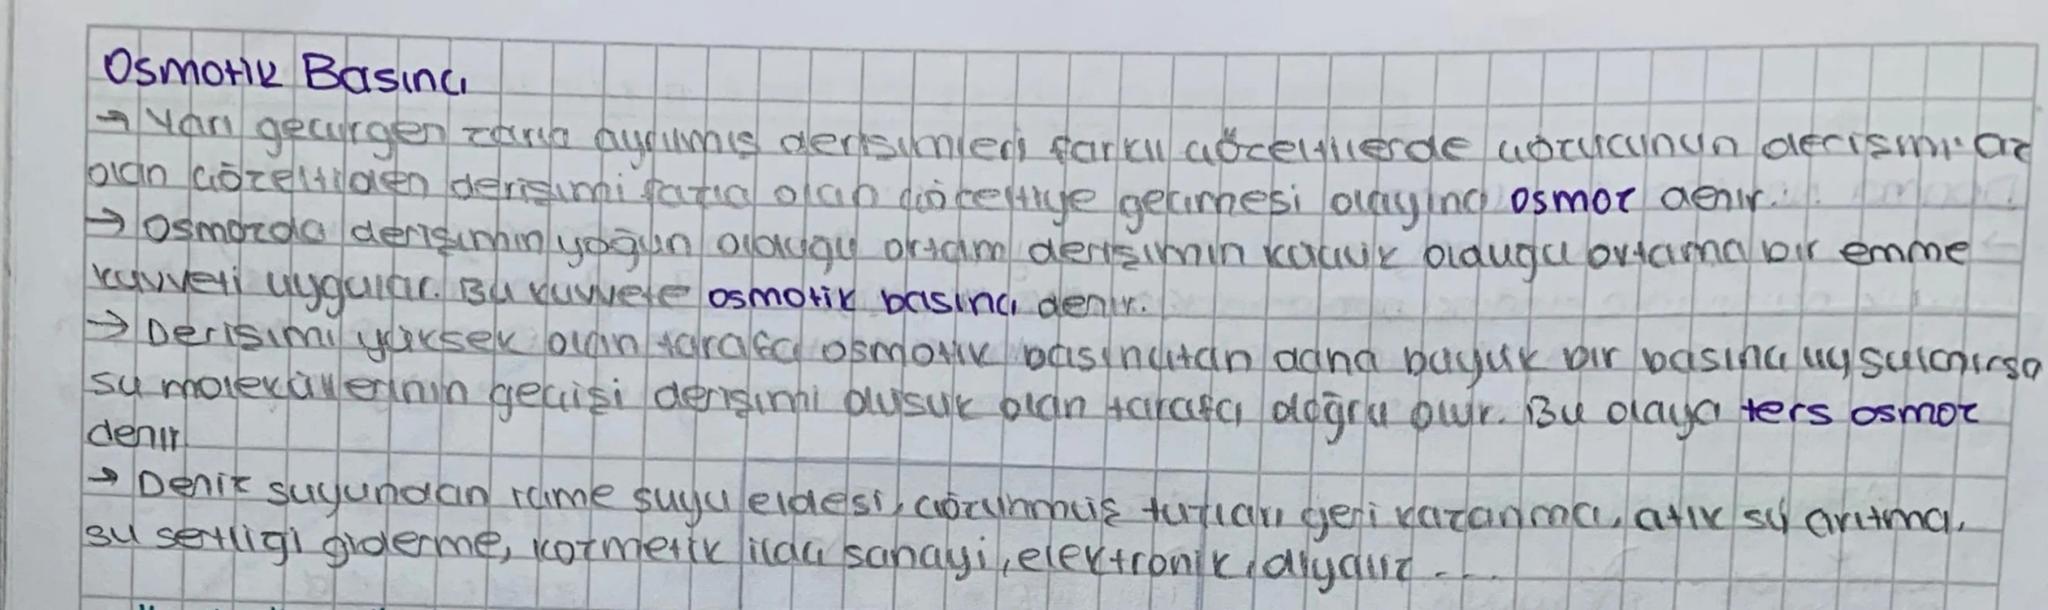 Osmotik Basınç
→ Yarı geçirgen zarla ayrılmış derişimleri farklı çözeltilerde çözücünün derişimi az
olan çözeltiden derişimi fazla olan çözeltiye geçmesi olayına osmoz denir.
→ Osmozda derişimin yoğun olduğu ortam derişimin küçük olduğu ortama bir emme
kuvveti uygular. Bu kuvvete osmotik basınç denir.
→ Derişimi yüksek olan tarafa osmotik basınçtan daha büyük bir basınç uygulanırsa
su moleküllerinin geçişi derişimi düşük olan tarafa doğru olur. Bu olaya ters osmoz
denir
→ Deniz suyundan içme suyu eldesi, çözünmüş tuzları geri kazanma, atık su arıtma,
su sertliği giderme, kozmetik ilaç sanayi, elektronik, diyaliz ....